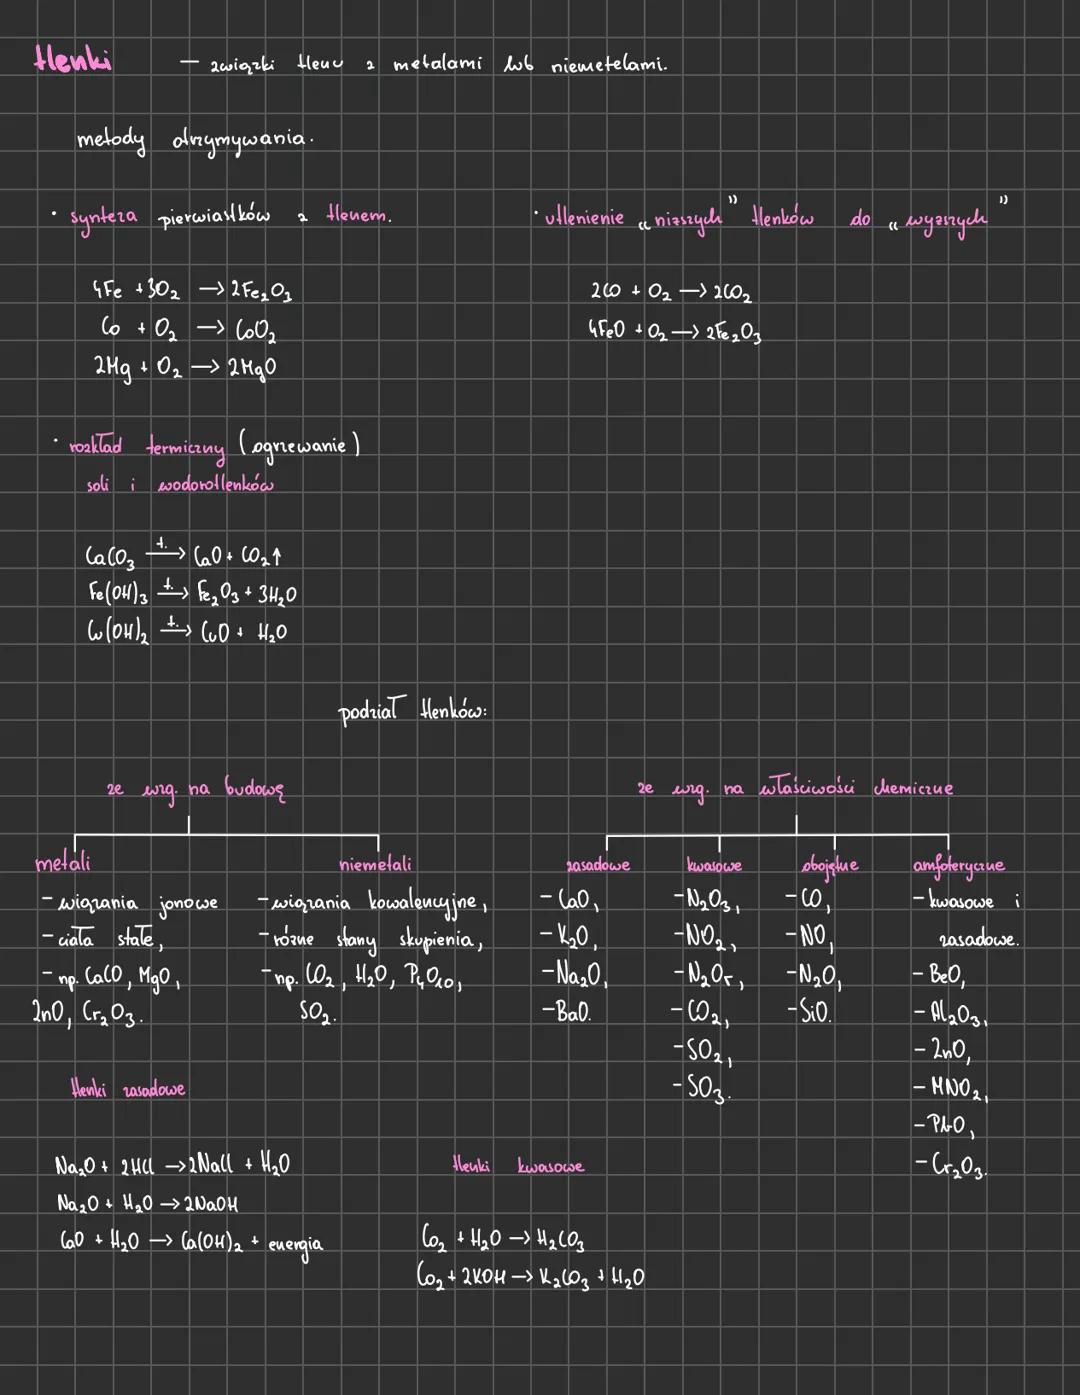 tlenki – związki tlenu z metalami lub niemetelami.
metody otrzymywania.
• synteza pierwiastków z tlenem.
4Fe + 3O₂ → 2Fe₂O₃
Co + O₂ → CoO₂
2Mg + O₂ → 2MgO
• utlenienie „niższych” tlenków do „wyższych”
2CO + O₂ → 2CO₂
4FeO + O₂ → 2Fe₂O₃
• rozkład termiczny (ogrzewanie)
soli i wodorotlenków
CaCO₃ –t.→ CaO + CO₂↑
Fe(OH)₃ –t.→ Fe₂O₃ + 3H₂O
Cu(OH)₂ –t.→ CuO + H₂O
podział tlenków:
ze wzg. na budowę
metali
– wiązania jonowe
– ciała stałe,
– np. CaCO, MgO,
ZnO, Cr₂O₃.
niemetali
– wiązania kowalencyjne,
– różne stany skupienia,
– np. CO₂, H₂O, P₄O₁₀,
SO₂.
ze wzg. na właściwości chemiczne
zasadowe
– CaO,
– K₂O,
– Na₂O,
– BaO.
kwasowe
– N₂O₃,
– NO₂,
– N₂O₅,
– CO₂,
– SO₂,
– SO₃.
obojętne
– CO,
– NO,
– N₂O,
– SiO.
amfoteryczne
– kwasowe i
zasadowe.
– BeO,
– Al₂O₃,
– ZnO,
– MNO₂,
– PbO,
– Cr₂O₃.
tlenki zasadowe
Na₂O + 2HCl → 2NaCl + H₂O
Na₂O + H₂O → 2NaOH
CaO + H₂O → Ca(OH)₂ + energia
tlenki kwasowe
CO₂ + H₂O → H₂CO₃
CO₂ + 2KOH → K₂CO₃ + H₂O